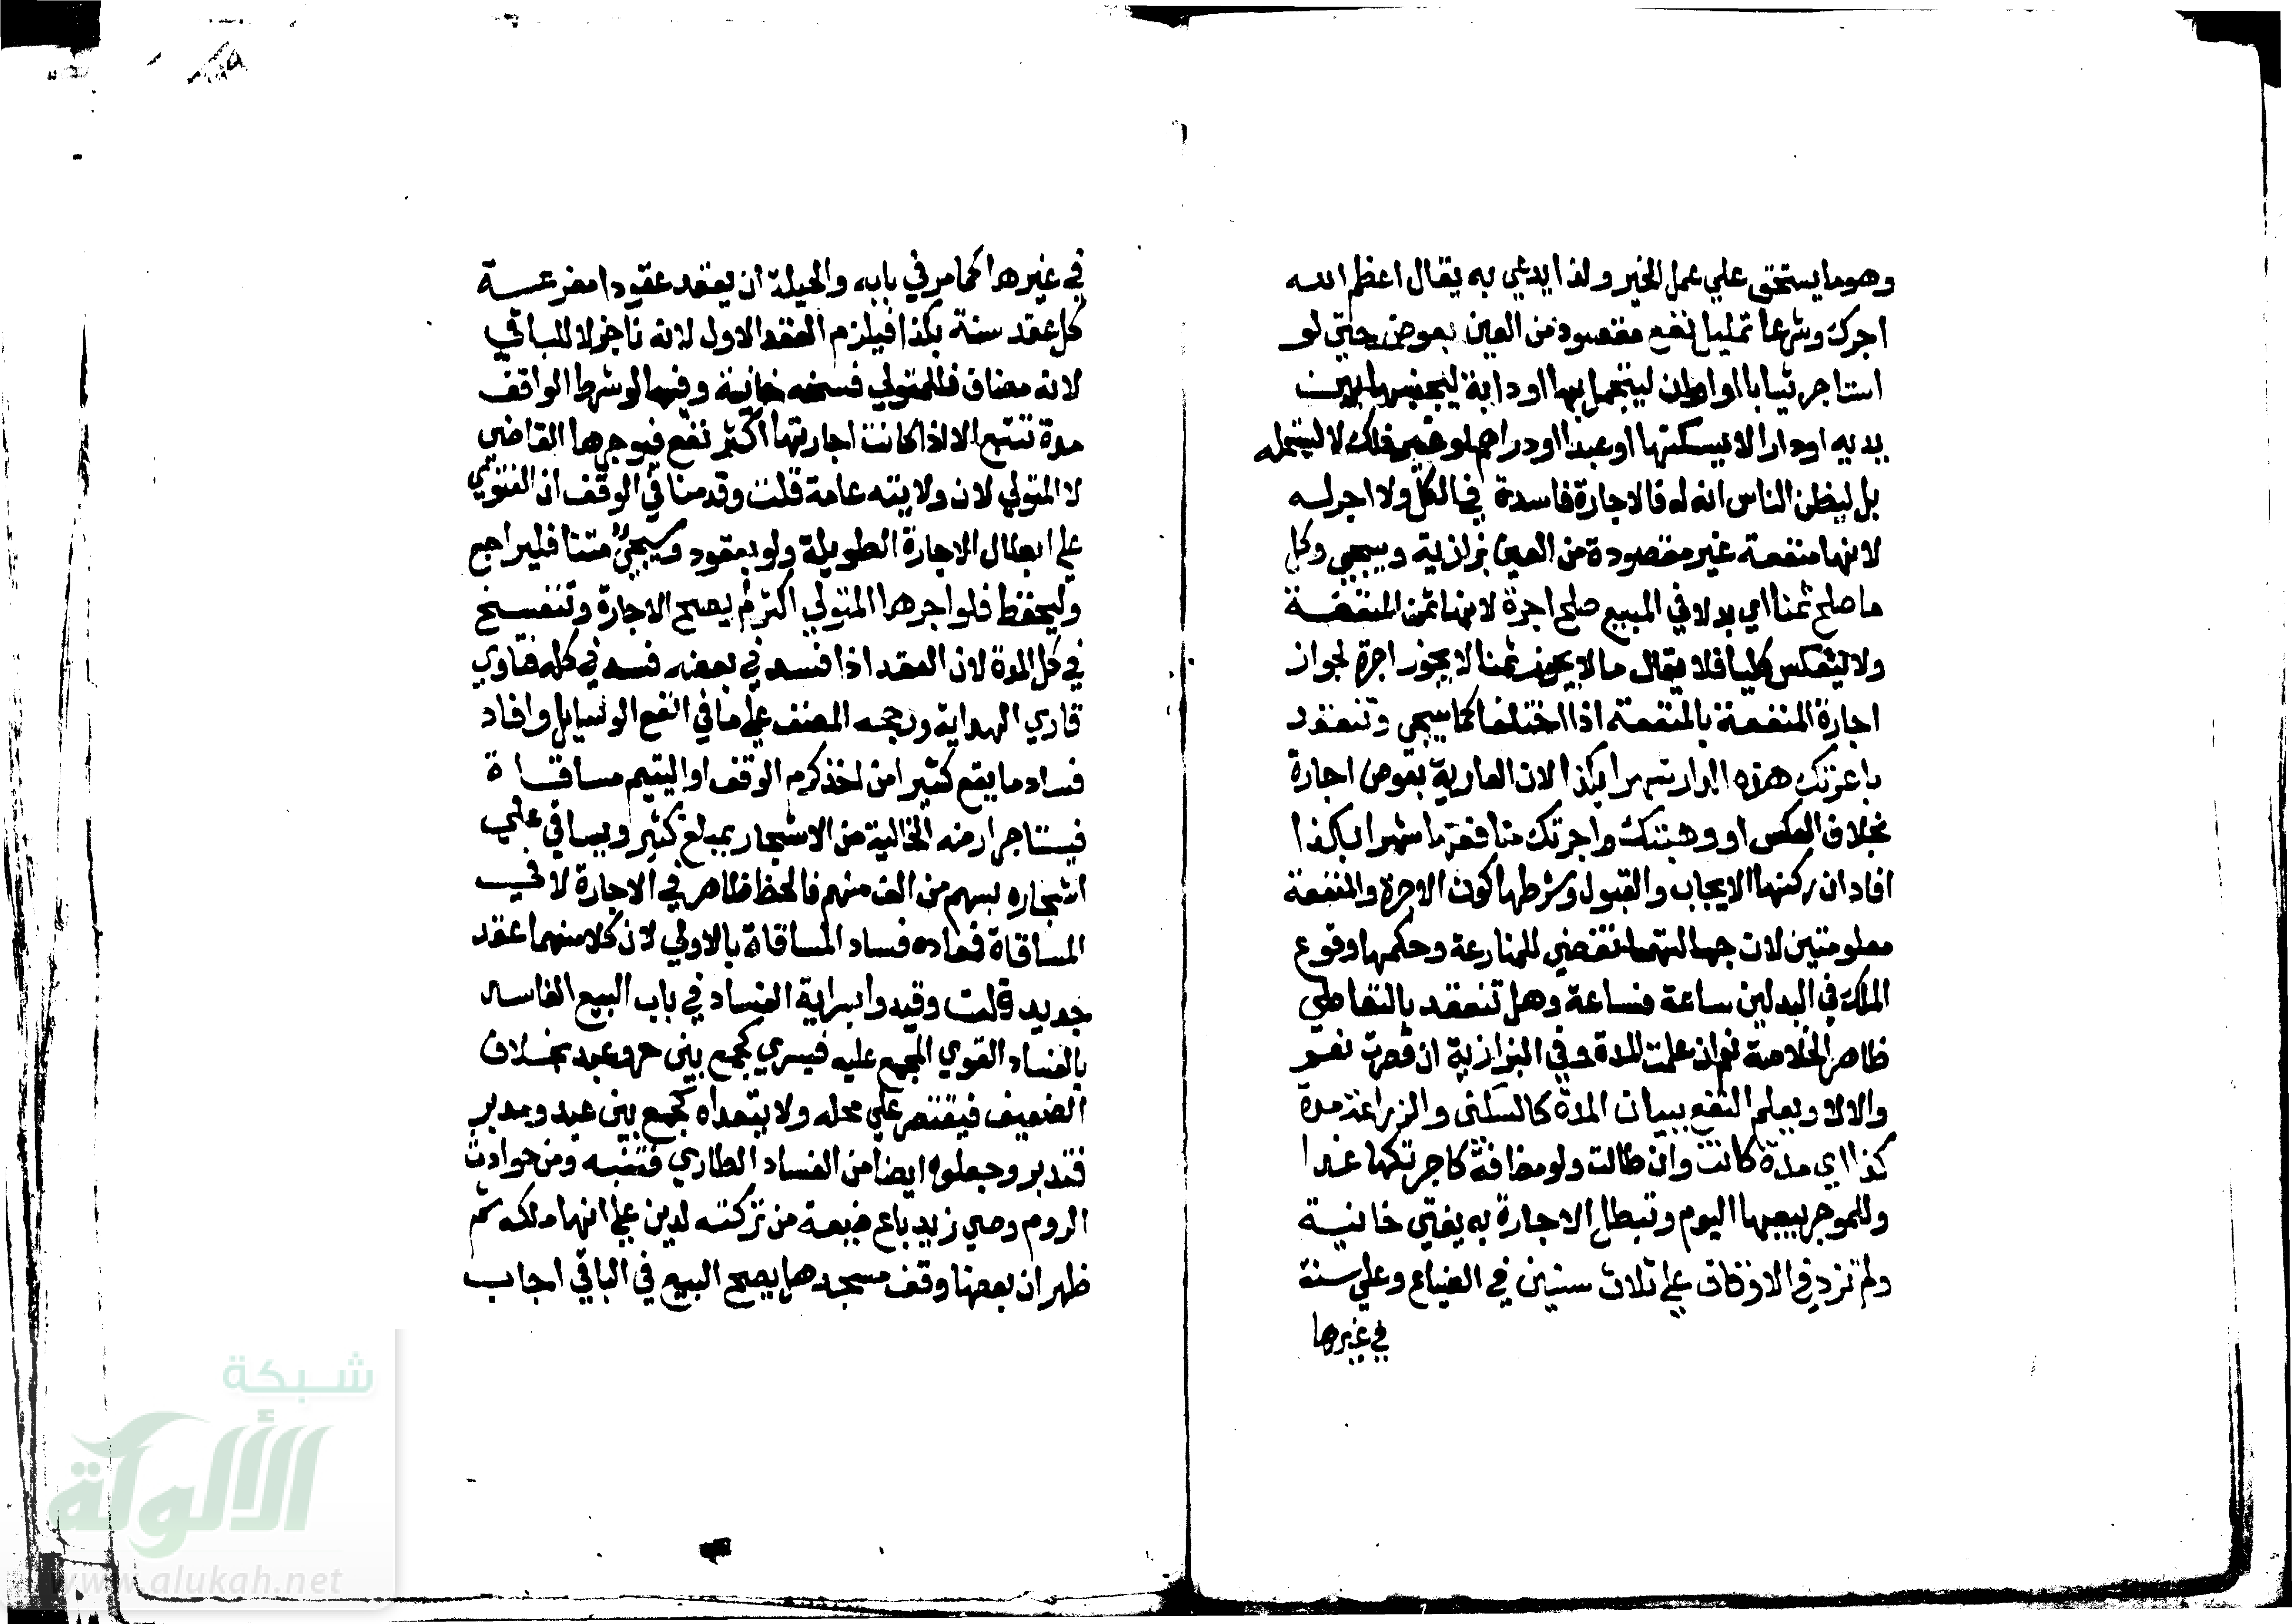 وهو ما يستحق علي عمل الخير ولذا يدعي به يقال اعظم الله
اجرك وشرعا تمليك نفع مقصود من العين بعوض حتي لو
استاجر ثيابا او اواني ليتجمل بها او دابة ليجنبها بين
يديه او دارا لا ليسكنها او عبدا او دراهم او غير ذلك لا ليستعمله
بل ليظن الناس انه له فالاجارة فاسدة في الكل ولا اجر له
لانها منفعة غير مقصودة من العين بزازية وسيجي وكل
ما صلح ثمنا اي بدلا في المبيع صلح اجرة لانها ثمن المنفعة
ولا ينعكس كليا فلا يقال ما لا يجوز ثمنا لا يجوز اجرة لجواز
اجارة المنفعة بالمنفعة اذا اختلفا كما سيجي وتنعقد
باعرتك هذه الدار شهرا بكذا لان العارية بعوض اجارة
بخلاف العكس او وهبتك واجرتك منافعها شهرا بكذا
افاد ان ركنها الايجاب والقبول وشرطها كون الاجرة والمنفعة
معلومتين لان جهالتهما تفضي للمنازعة وحكمها وقوع
الملك في البدلين ساعة فساعة وهل تنعقد بالتعاطي
ظاهر الخلاصة نعم ان علمت المدة وفي البزازية ان قصرت نعم
والا لا ويعلم النفع ببيان المدة كالسكنى والزراعة مدة
كذا اي مدة كانت وان طالت ولو مضافة كاجرتكها غدا
وللموجر بيعها اليوم وتبطل الاجارة به يفتي خانية
ولم تزد في الاوقاف علي ثلاث سنين في الضياع وعلي سنة
في غيرها
في غيرها كما مر في بابه والحيلة ان يعقد عقودا متفرعة
كل عقد سنة بكذا فيلزم العقد الاول لانه ناجز لا للباقي
لانه مضاف فللمتولي فسخه خانية وفيها لو شرط الواقف
مدة تتبع الا اذا كانت اجارتها اكثر نفع فيوجرها القاضي
لا المتولي لان ولايته عامة قلت وقدمنا في الوقف ان الفتوي
علي ابطال الاجارة الطويلة ولو بعقود وسيجيء متنا فليراجع
وليحفظ فلو اجرها المتولي اكثر لم يصح الاجارة وتنفسخ
في كل المدة لان العقد اذا فسد في بعضه فسد في كله فتاوي
قاري الهداية ورجحه المصنف علي ما في انفع الوسايل وافاد
فساد ما يقع كثيرا من اخذ كرم الوقف او اليتيم مساقاة
فيستاجر ارضه الخالية من الاشجار بمبلغ كثير ويساقي علي
اشجاره بسهم من الف سهم فالحظ ظاهر في الاجارة لا في
المساقاة فمفاده فساد المساقاة بالاولي لان كلا منهما عقد
جديد قلت وقيدوا سراية الفساد في باب البيع الفاسد
بالفساد القوي المجمع عليه فيسري كجمع بين حر وعبد بخلاف
الضعيف فيقتصر علي محله ولا يتعداه كجمع بين عبد ومدبر
فتدبر وجعلوه ايضا من الفساد الطاري فتنبه ومن حوادث
الروم وصي زيد باع ضيعة من تركته لدين علي انها ملكه ثم
ظهر ان بعضها وقف مسجد هل يصح البيع في الباقي اجاب
شبكة
الألوكة
www.alukah.net